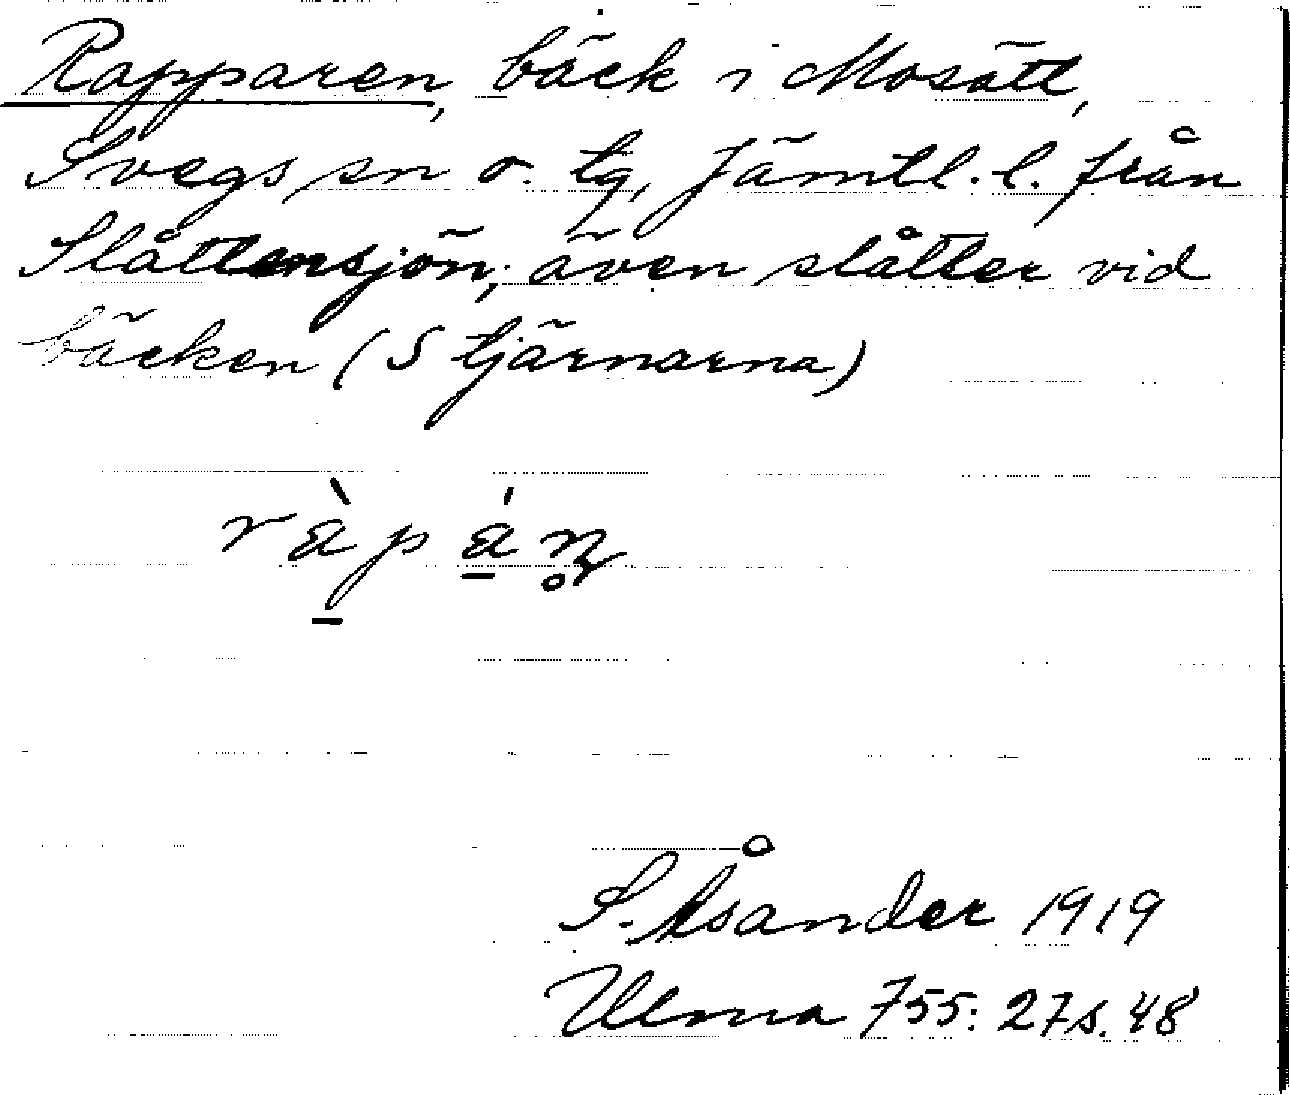 Rapparen, bäck i Mosätt,
Svegs sn o. tg, Jämtl. l. från
Slåttensjön; även slåtter vid
bäcken (S tjärnarna)
ràpán̥
S. Åsander 1919
Ulma 755: 27 s. 48